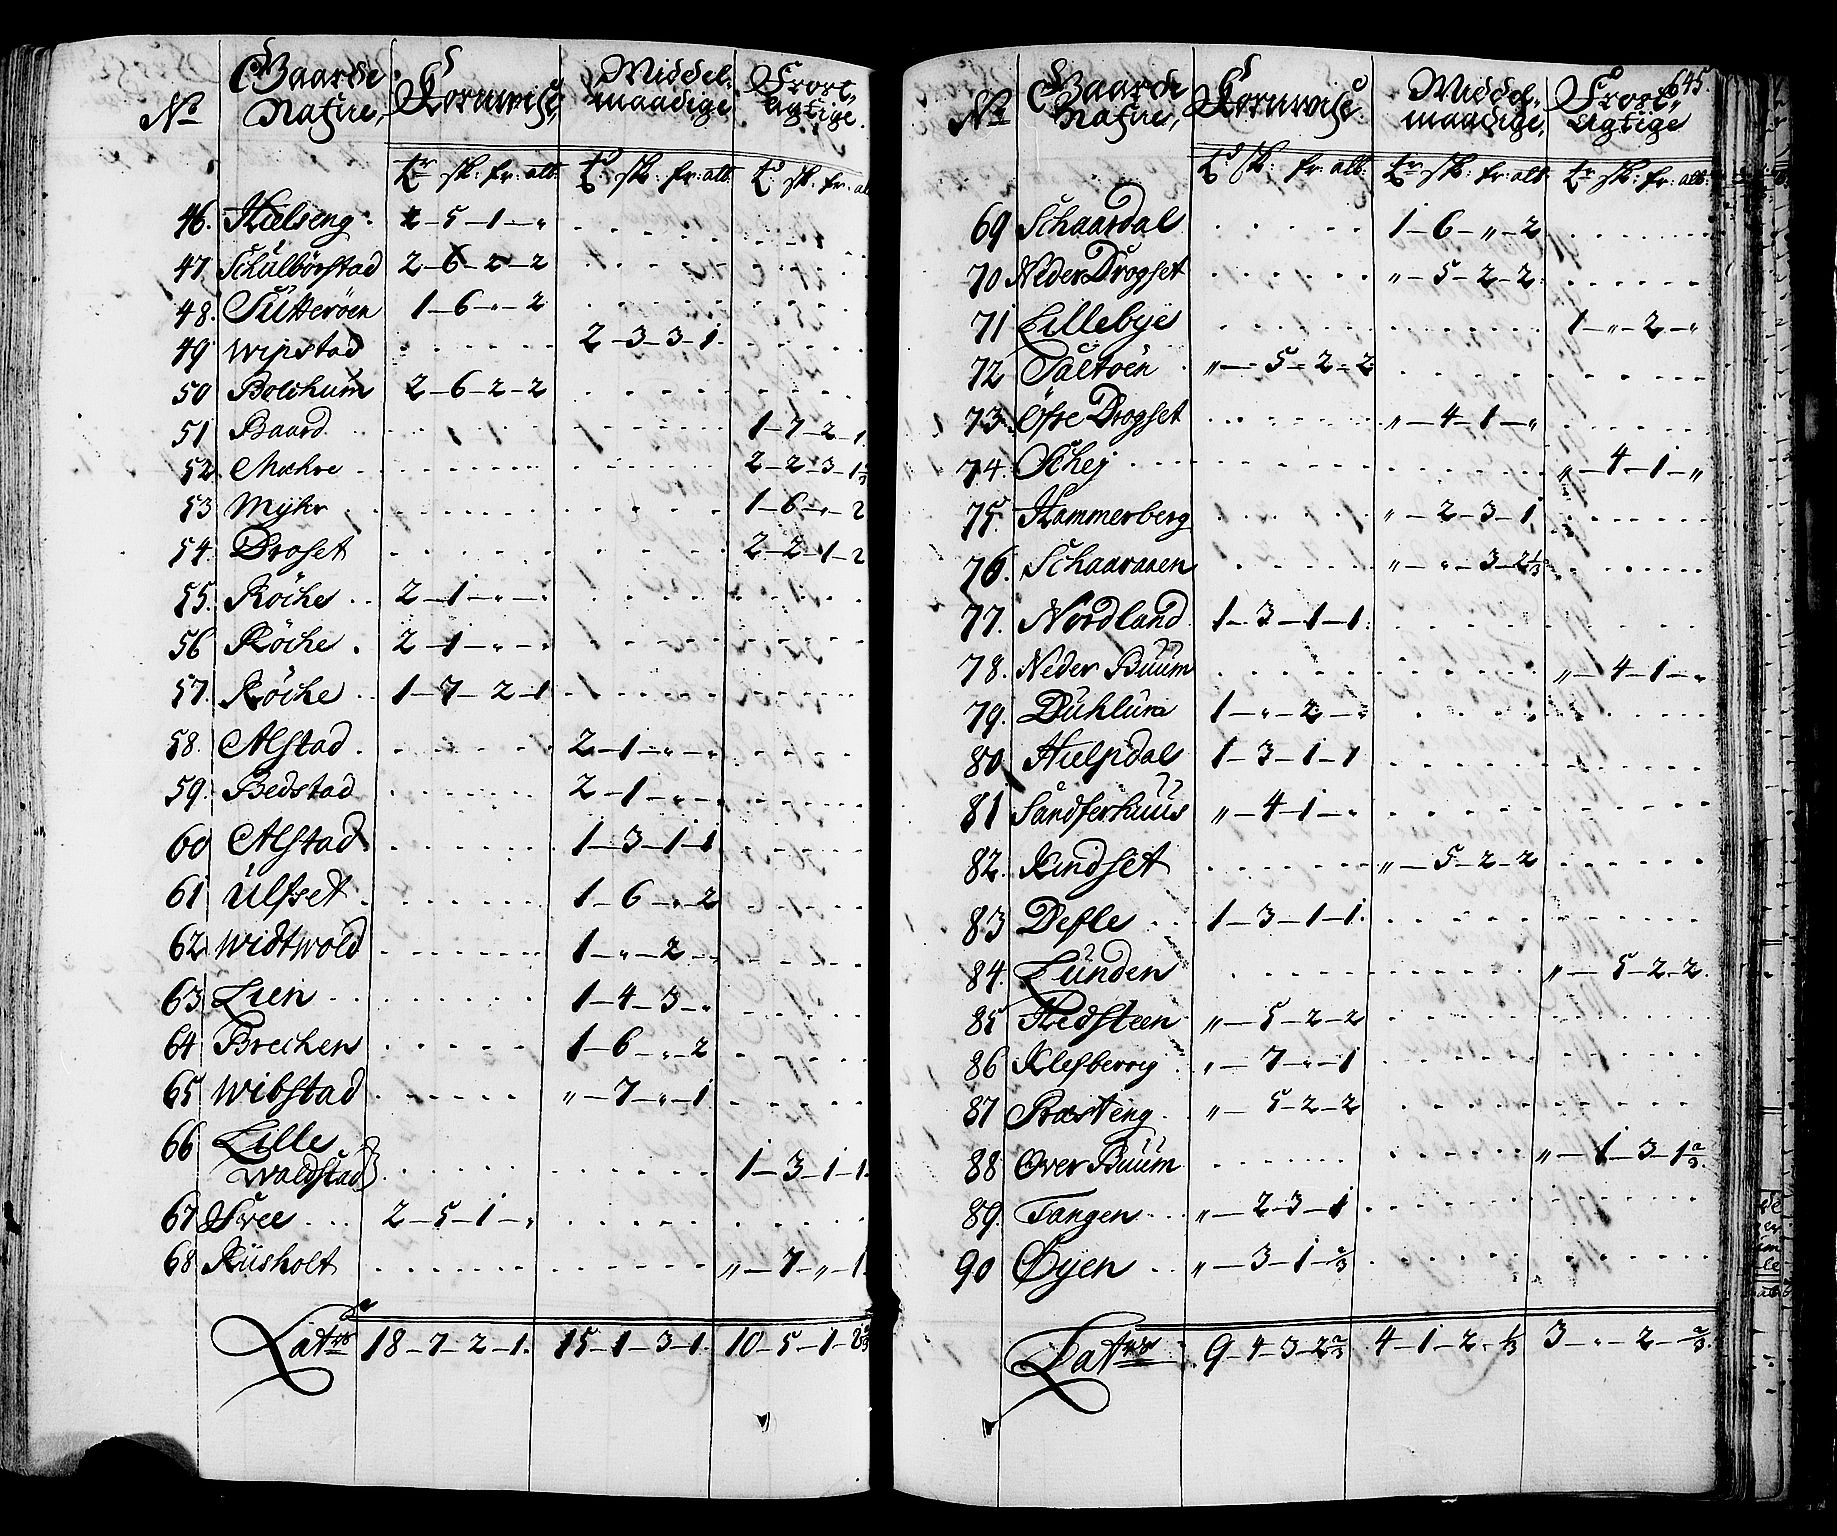 No Gaarde Nafne, Kornwiße, Middelmaadige Frostagtige.
tr sk: fr: alb. td sk: fr: alb. td sk: fr: al
46. Hielseng. 2-5-1-"
47 Schulbörstad 2-6-2-2
48. Sutteröen 1-6-"-2
49 Wipstad 2-3-3-1.
50 Bolchum 2-6-2-2
51 Baard. 1-7-2-1
52. Mæhre 2-2-3-1
53 Myhr 1-6-"-2
54. Droset 2-2-1-2
55. Röche 2-1-"-"
56 Röche. 2-1-"-"
57. Röche 1-7-2-1
58. Alstad. 2-1-"-"
59. Bedstad 2-1-"-"
60 Alstad 1-3-1-1
61 Ulfset 1-6-"-2
62. Widtwold 1-"-2-"
63. Lien 1-4-3-"
64 Brechen 1-6-"-2
65 Wibstad "-7-"-1
66 Lille
Waldstad} 1-3-1-1.
67 Svee 2-5-1-"
68. Rüsholt "-7-"-1.
Latus 18-7-2-1. 15-1-3-1. 10-5-1-
645.
No Gaarde Nafne, Kornwiße. Middelmaadige, Frostagtige
td sk: fr: alb: tr sk: fr: alb. tr sk: fr: alb.
69 Schaardal 1-6-"-2
70 Neder Drogset "-5-2-2.
71 Lillebye 1-"-2-"
72 Saltöen "-5-2-2
73. Öfre Drogset "-4-1-"
74. Schej "-4-1-"
75. Hammerberg "-2-3-1
76. Schaaraaen "-"-3-2⅓
77. Nordland 1-3-1-1.
78. Neder Buum "-4-1-"
79. Duhlum 1-"-2-"
80. Hielpdal 1-3-1-1
81 Sandferhuus "-4-1-"
82. Rindset "-5-2-2
83 Defle 1-3-1-1.
84. Lunden "-5-2-2.
85 Hedsteen "-5-2-2
86 Klefberg "-7-"-1
87 Præsteng "-5-2-2
88 Over Buum "-1-3-1⅔.
89. Tangen "-2-3-1
90 Øyen "-3-1-⅔
Latus 9-4-3-2⅔ 4-1-2-⅓ 3-"-2-⅔.